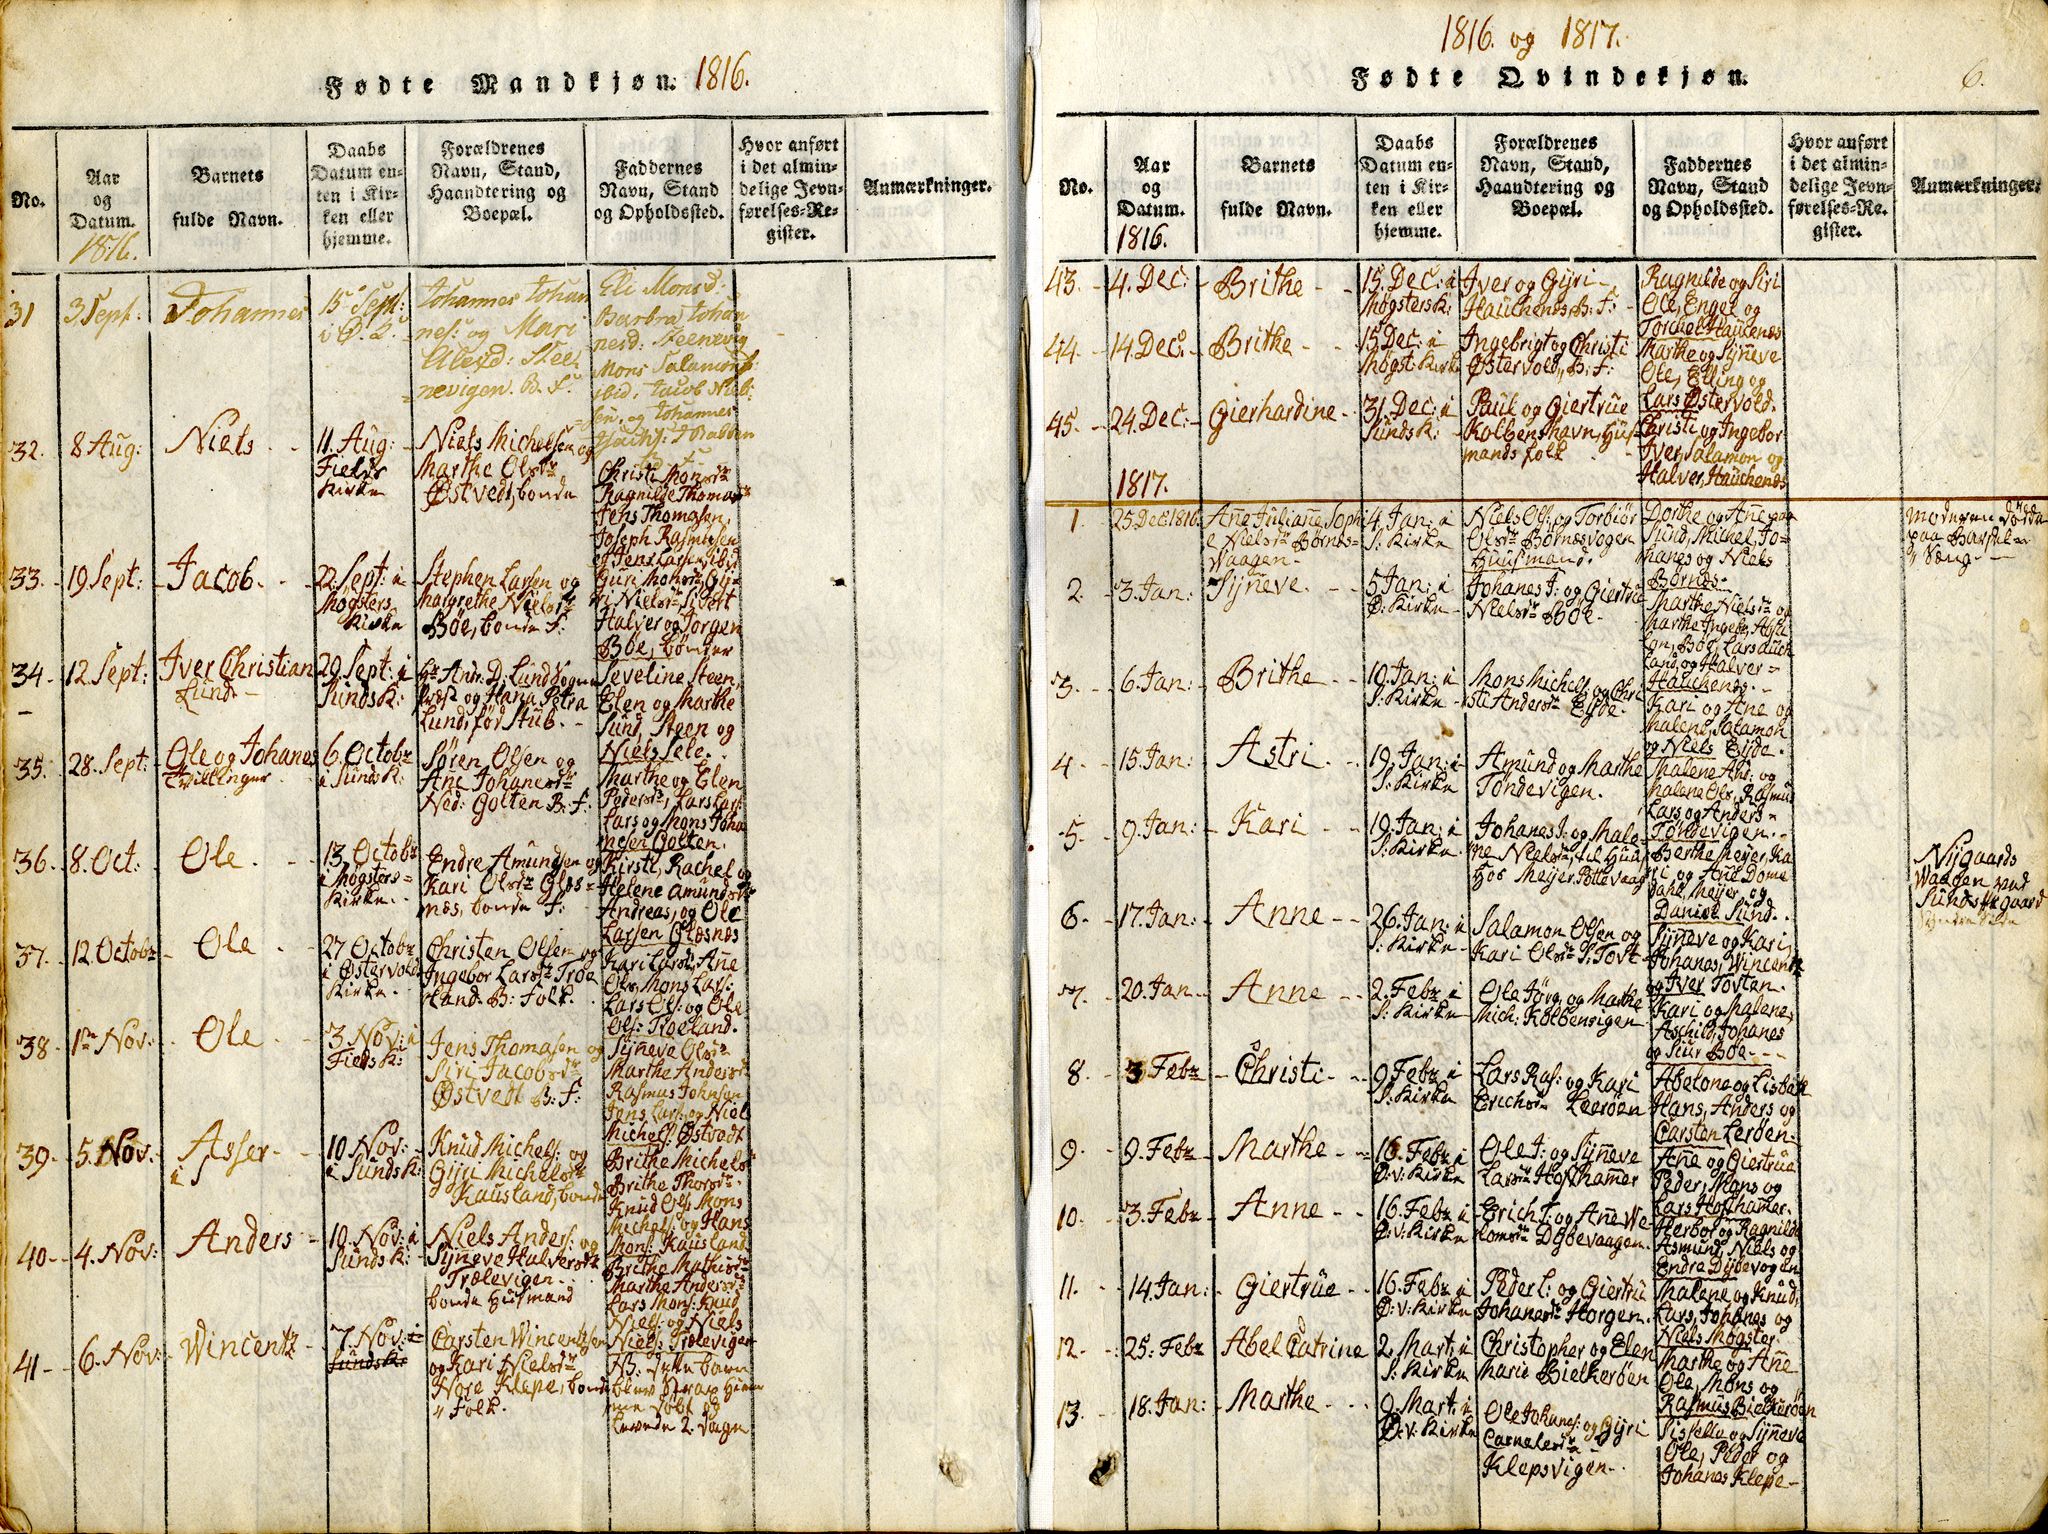 Fødte Mandkjøn. 1816.
No.
Aar
og
Datum.
1816.
Barnets
fulde Navn.
Daabs
Datum en-
ten i Kir-
ken eller
hjemme.
Forældrenes
Navn, Stand,
Haandtering og
Boepæl.
Faddernes
Navn, Stand
og Opholdssted.
Hvor anført
i det almin-
delige Jevn-
førelses-Re-
gister.
Anmærkninger.
31
3 Sept.
Johannes
15 Sept:
i Ø. K.
Johannes Johan
nes: og Mari
nevigen. B. F.
Eli Monsd:
Barbra Johan
nesd: Steenevig
Mons Salamons:
ibid, Jacob Niel-
sen og Johannes
32.
8 Aug:
Niels
11. Aug:
Fields
Kirke
Niels Michelsen og
Marthe Olsdr
Østvedt, bonde
Christi Monsdr
Ragnilde Thomasdr
Jens Thomasen,
Joseph Rasmusen
og Jens Larsen ibid
33.
19 Sept:
Jacob.
22. Sept: i
Møgsters
Kirke
Stephen Larsen og
Margrethe Nielsdr
Böe, bonde F:
Guri Monsdr, Gy-
ri Nielsdr Sivert
Halver og Jørgen
Böe, bönder
34.
12. Sept:
Iver Christian
Lund.
29 Sept: i
Sunds K:
Hr Andr. D. Lund Sogne
Præst og Hana Petra
Lund, fød Stub.
Seveline Steen,
Elen og Marthe
Sund, Steen og
Niels Lele.
35.
28. Sept:
Ole og Johanes
Tvillinger
6. Octobr
i Sunds K:
Sören Olsen og
Ane Johanesdr
Ned: Golten B: F:
Marthe og Elen
Pedersdr, Lars Lars:
Lars og Mons Joha
nesen Golten.
36.
8. Oct:
Ole.
13 Octobr
i Møgsters
Kirke.
Endre Amundsen og
Kari Olsdr Gles-
næs, bonde F:
Kirsti, Rachel og
Helene Amundsdr
Andreas, og Ole
Larsen Glesnæs
37.
12. Octobr
Ole
27 Octobr
i Østervold
Kirke.
Christen Olsen og
Ingebor Larsdr Troe
land. B: Folk.
Kari Larsdr, Ane
Ols, Mons Lars:
Lars Ols: og Ole
Ols: Troeland.
38.
1ste Nov:
Ole
3 Nov: i
Fields K:
Jens Thomasen og
Siri Jacobsdr
Østvedt B: F:
Syneve Olsdr
Marthe Andersdr
Rasmus Johnsen
Jens Lars: og Niels
Michels: Østvedt
39.
5. Nov:
Asser
10. Nov:
i Sunds K:
Knud Michels: og
Gyri Michelsdr
Kausland, bonde
Brithe Michels
Brithe Thorsdr
Knud Ols: Mons
Michels: og Hans
Mons: Kausland
40.
4. Nov:
Anders
10. Nov: i
Sunds K:
Niels Anders: og
Syneve Halversdr
Trælevigen.
bonde Husmand
Brithe Mathisdr
Marthe Andersdr
Lars Mons: Knud
Niels: og Niels
Niels: Trælevigen
41
6. Nov:
Wincentz
7. Nov: i
Sunds K:
Carsten Wincentzsen
og Kari Nielsdr
Nore Klepe, bonde
Folk.
NB. dette barn
blev strax Hiem
me døbt og
levede 2. Dage
1816. og 1817.
Fødte Qvindekjøn.
6.
No.
Aar
og
Datum.
1816.
Barnets
fulde Navn.
Daabs
Datum en-
ten i Kir-
ken eller
hjemme.
Forældrenes
Navn, Stand,
Haandtering og
Boepæl.
Faddernes
Navn, Stand
og Opholdssted.
Hvor anført
i det almin-
delige Jevn-
førelses-Re-
gister.
Anmærkninger.
43.
4. Dec:
Brithe
15. Dec: i
Møgsters K:
Iver og Gyri
Hauchenes B: F:
Ragnilde og Siri
Ole, Engel og
Torchel Hauchenes
44.
14. Dec:
Brithe
15 Dec: i
Møgst: Kirke
Ingebrigt og Christi
Østervold, B: F:
Marthe og Syneve
Ole, Elling og
Lars Østervold.
45.
24. Dec:
Gierhardine
31. Dec: i
Sunds K:
Paul og Giertrue
Kolbenshavn, Huus-
mands folk
Christi og Ingebor
Iver, Salamon og
Halver, Hauchenes
1817.
1.
25. Dec: 1816
Ane Juliane Soph
e Nielsdr Børnes-
Vaagen.
4. Jan: i
S: Kirke
Niels Ols: og Torbiør
Olsdr Børnesvogen
Huusmand.
Dorthe og Ane paa
Sund, Michel, Jo-
hanes og Niels
Børnes.
Moderen døde
paa Barsel
Seng
2.
3. Jan:
Syneve.
5 Jan: i
Ø: Kirke
Johanes I: og Giertru
Nielsdr Böe.
Marthe Nielsdr og
Marthe Ingebr, Absa
lon, Böe, Lars Buch
land, og Halver
Hauchenes.
3.
6. Jan:
Brithe
19. Jan: i
S: Kirke
Mons Michels: og Chri
sti Andersdr Eyde.
Kari og Ane og
Malene, Salamon
og Niels Eyde.
4.
15. Jan:
Astri.
19. Jan: i
S: Kirke
Amund og Marthe
Töndevigen.
Malene And: og
Malene Ols, Rasmus
Lars og Anders
Töndevigen.
5.
9. Jan:
Kari
19. Jan: i
S: Kirke
Johanes I: og Male-
ne Nielsdr, til Huus
Hos Meyer, Pottevaag
Berthe Meyer, Ka
ri og Ane Dome
dahl, Meyer, og
Daniel Sund.
Nygaards
Waagen ved
Sunds Præstegaard
6.
17. Jan:
Anne
26. Jan: i
S: Kirke
Salamon Olsen og
Kari Olsdr S: Toft
Syneve og Kari
Johanes, Wincentz
og Iver Toften.
7.
20. Jan
Anne
2. Febr i
S: Kirke
Ole Jörg: og Marthe
Mich: Kolbensvigen
Kari og Malene,
Aschild, Johanes
og Siur Böe.
8.
3 Febr
Christi
9. Febr i
S: Kirke
Lars Ras: og Kari
Erichsdr Leeröen
Abelone og Lisbeth
Hans, Anders og
Carsten Leröen.
9.
9. Febr
Marthe
16. Febr i
Ø: v: Kirke
Ole I: og Syneve
Larsdr Hofthamer
Ane og Giertrue
Peder, Mons og
Lars Hofthamer.
10.
3. Febr
Anne
16. Febr i
Ø: v: Kirke
Erich I: og Ane We
lomsdr Dybevaagen.
Herbor og Ragnilde
Asmund, Niels og
Endre Dybevogen
11.
14. Jan:
Giertrüe
16. Febr i
Ø: v: Kirke
Peder L: og Giertru
Johanesdr Horgen.
Malene og Knud,
Lars, Johanes og
Niels Møgster.
12.
25. Febr
Abel Catrine
2. Mart: i
S: Kirke
Christopher og Elen
Marie Bielkeröen
Marthe og Ane
Ole, Mons og
Rasmus Bielkeröen
13.
18. Jan:
Marthe
9. Mart: i
Ø: v: Kirke
Ole Johans: og Gyri
Carnelesdr
Klepsvigen.
Sisselle og Syneve
Ole, Peder og
Johanes Klepe